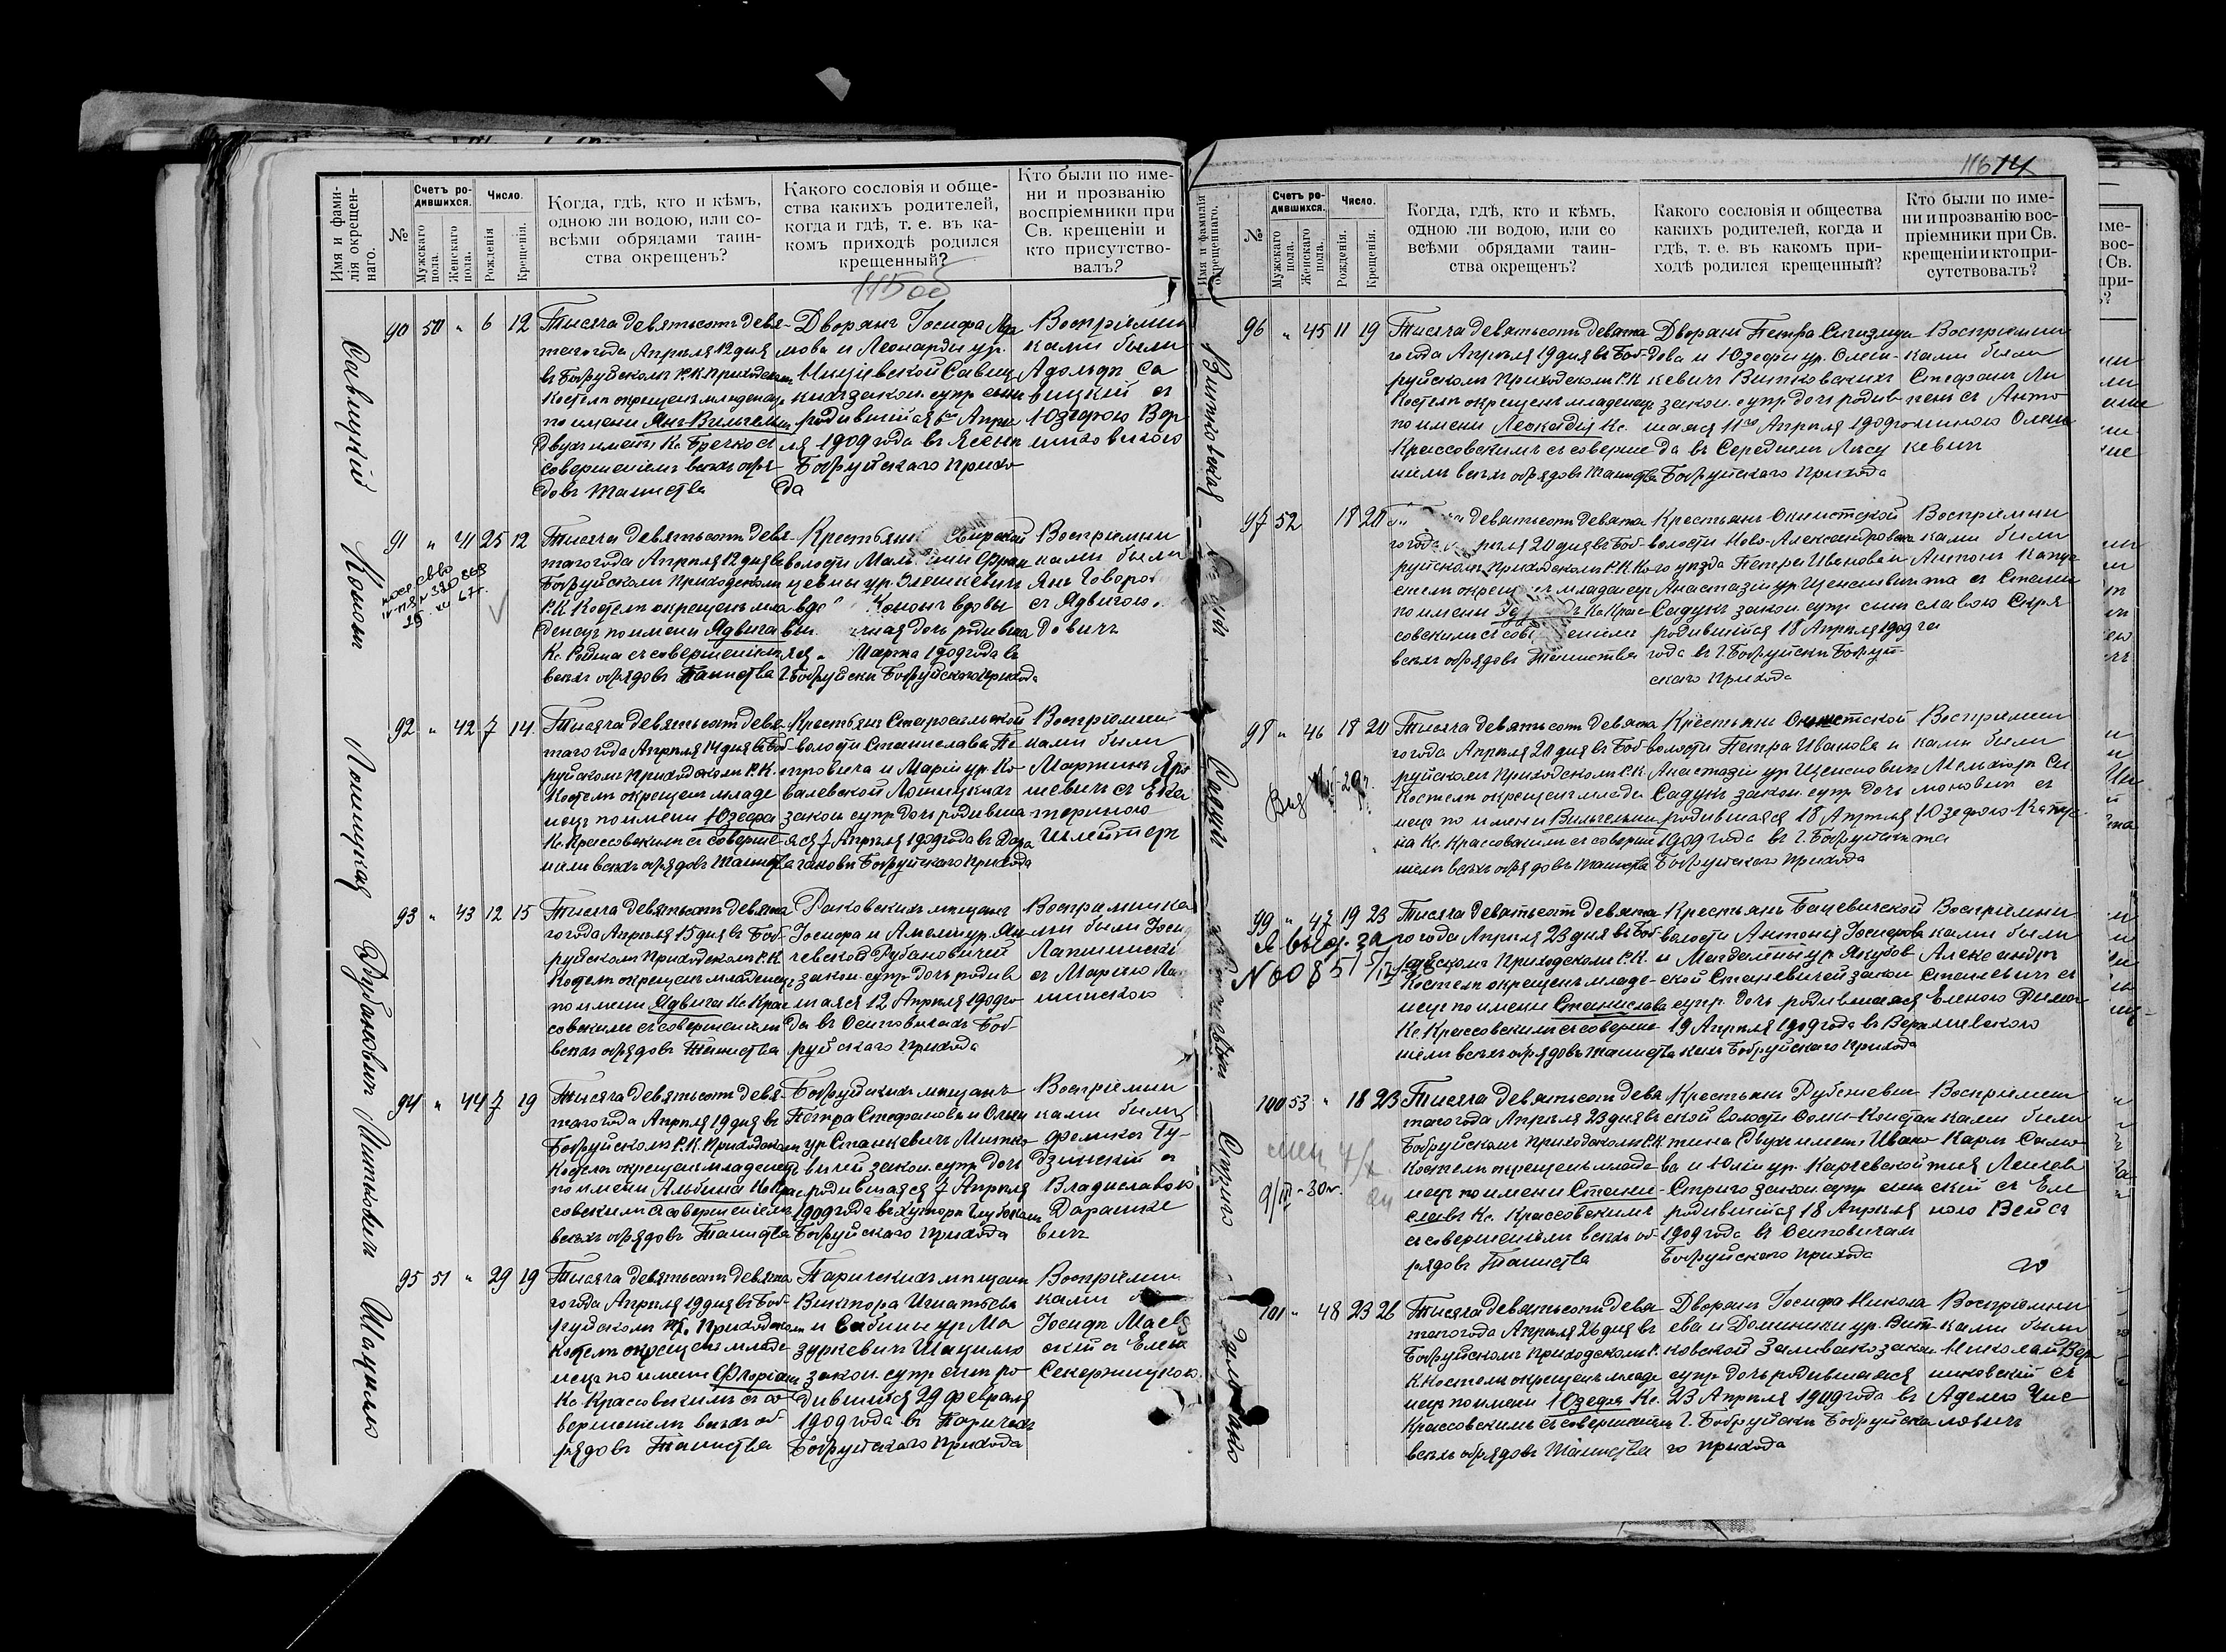 Имя и фами-
лія окрещен-
наго.
№
Счетъ ро-
дившихся.
Мужскаго
пола.
Женскаго
пола.
Число.
Рожденія
Крещенія.
Когда, гдѣ, кто и кѣмъ,
одною ли водою, или со-
всѣми обрядами таин-
ства окрещенъ?
Какого сословія и обще-
ства какихъ родителей,
когда и гдѣ, т. е. въ ка-
комъ приходѣ родился
крещенный?
Кто были по име-
ни и прозванію
воспріемники при
Св. крещеніи и
кто присутство-
валъ?
115 об
Савицкій
90 50 " 6 12
Тысяча девятьсотъ девя-
таго года Апрѣля 12 дня
въ Бобруйскомъ Р.К. Приходскомъ
Костелѣ окрещенъ младенецъ
по имени Янъ-Вильгельмъ
двухъ именъ Кс. Бречко съ
совершеніемъ всѣхъ обря-
довъ Таинства
Дворянъ Іосифа Ада
мова и Леонарды ур.
Савиц
кихъ закон. супр. сынъ
родившійся 6го Апрѣ
ля 1909 года въ Ясены
Бобруйскаго прихо
да
Воспріемни
ками были
Адольфъ Са
вицкій съ
Юзефою Вер
никовскою
Кононъ
91 " 41 25 12
25.XII 67г.
Тысяча девятьсотъ девя-
таго года Апрѣля 12 дня въ
Бобруйскомъ Приходскомъ
Р.К. Костелѣ окрещенъ мла
денецъ по имени Ядвига
Кс. Родзя съ совершеніемъ
всѣхъ обрядовъ Таинства
Крестьян Свирской
волости Фран
цевны ур. Элешкевичъ
Кононъ вдовы
ная дочь родивша
яся Марта 1909 года въ
г. Бобруйскѣ Бобруйскаго прихода
Воспріемни
ками были
Янъ Говоро
съ Ядвигою
довичъ
Лопицкая
92 " 42 7 14.
Тысяча девятьсотъ девя-
таго года Апрѣля 14 дня въ Боб-
руйскомъ Приходскомъ Р.К.
Костелѣ окрещенъ младе
нецъ по имени Юзефа
Кс. Крассовскимъ съ соверше
ніемъ всѣхъ обрядовъ Таинства
Крестьянъ Старосельской
волости Станислава Пе
тровича и Маріи ур. Ко
валевской Лопицкихъ
закон. супр. дочь родивша
яся 7 Апрѣля 1909 года въ Дара
гановѣ Бобруйскаго прихода
Воспріемни
ками были
Мартинъ Яро
шевичъ съ Ека
териною
Шлейтеръ
Рубановичъ
93 " 43 12 15
Тысяча девятьсотъ девята
го года Апрѣля 15 дня въ Боб-
руйскомъ Приходскомъ Р.К.
Костелѣ окрещенъ младенецъ
по имени Ядвига Кс. Крас
совскимъ съ совершеніемъ
всѣхъ обрядовъ Таинства
Раковскихъ мѣщанъ
Іосифа и Амеліи ур. Ян
чевской Рубановичей
закон. супр. дочь родив
шаяся 12 Апрѣля 1909 го
да въ Осиповичахъ Боб-
руйскаго прихода
Воспріемника
ми были Іосиф
Лапшински
съ Маріею Ла
шинскою
Митьковичъ
94 " 44 7 19
Тысяча девятьсотъ девя-
таго года Апрѣля 19 дня въ
Бобруйскомъ Р.К. Приходскомъ
Костелѣ окрещенъ младенецъ
по имени Альбина Кс. Крас
совскимъ съ совершеніемъ
всѣхъ обрядовъ Таинства
Бобруйскихъ мѣщанъ
Петра Стефанова и Ольги
ур. Станкевичъ Митько
вичей закон. супр. дочь
родившаяся 7 Апрѣля
1909 года въ хуторѣ Глубокомъ
Бобруйскаго прихода
Воспріемни
ками были
Феликсъ Гу-
дзинскій съ
Владиславою
Дарашке
вичъ
Шацилло
95 51 " 29 19
Тысяча девятьсотъ девята
го года Апрѣля 19 дня въ Боб-
руйскомъ Приходскомъ
Костелѣ окрещенъ младе
нецъ по имени Флоріанъ
Кс. Крассовскимъ съ со
вершеніемъ всѣхъ об
рядовъ Таинства
Паричскихъ мѣщан
Виктора Игнатьева
и Сабины ур. Ма
зуркевичъ Шацилло
закон. супр. сынъ ро
дившійся 29 февраля
1909 года въ Паричахъ
Бобруйскаго прихода
Воспріемни
ками
Іосифъ Маев
скій съ Елен
Секержицкою
116 14
Имя и фамилія
окрещеннаго.
№
Счетъ ро-
дившихся.
Мужскаго
пола.
Женскаго
пола.
Число.
Рожденія.
Крещенія.
Когда, гдѣ, кто и кѣмъ,
одною ли водою, или со
всѣми обрядами таин-
ства окрещенъ?
Какого сословія и общества
какихъ родителей, когда и
гдѣ, т. е. въ какомъ при-
ходѣ родился крещенный?
Кто были по име-
ни и прозванію вос-
пріемники при Св.
крещеніи и кто при-
сутствовалъ?
Витковская
96 " 45 11 19
Тысяча девятьсотъ девята
го года Апрѣля 19 дня въ Боб-
руйскомъ Приходскомъ Р.К.
Костелѣ окрещенъ младенецъ
по имени Леокадія Кс.
Крассовскимъ съ соверше
ніемъ всѣхъ обрядовъ Таинства
Дворянъ Петра Сигизму
дова и Юзефы ур. Олеш-
кевичъ Витковскихъ
закон. супр. дочь родив
шаяся 11го Апрѣля 1909 го
да въ Середнемъ Лѣсу
Бобруйскаго Прихода
Воспріемни
ками были
Стефанъ Ли
пень съ Анто
ниною Олеш
кевичъ
97 52 18 20
девятьсотъ девята
го года рѣля 20 дня въ Боб-
руйскомъ Приходскомъ Р.К. Ко
стелѣ окрещенъ младенецъ
по имени Кс. Крас
совскимъ съ сов шеніемъ
всѣхъ обрядовъ Таинства
Крестьянъ Окнистской
волости Ново-Александровска
го уѣзда Петра Иванова и
Анастазіи ур. Щенсновичъ
Садукъ закон. супр. сынъ
родившійся 18 Апрѣля 1909
года въ г. Бобруйскѣ Бобруй-
скаго прихода
Воспріемни
ками были
Антонъ Капус
та съ Стани
славою Скря
га
Садукъ
98 " 46 18 20
Тысяча девятьсотъ девята
го года Апрѣля 20 дня въ Боб-
руйскомъ Приходскомъ Р.К.
Костелѣ окрещенъ младе
нецъ по имени Вильгельми
на Кс. Крассовскимъ съ соверше
ніемъ всѣхъ обрядовъ Таинства
Крестьянъ Окнистской
волости Петра Иванова и
Анастазіи ур. Щенсновичъ
Садукъ закон. супр. дочь
родившаяся 18 Апрѣля
1909 года въ г. Бобруйскѣ
Бобруйскаго прихода
Воспріемни
ками были
Мельхіоръ Си
моновичъ съ
Юзефою Капус
та
99 " 47 19 23
Я выд. за
N 6085
Тысяча девятьсотъ девята
го года Апрѣля 23 дня въ Боб
руйскомъ Приходскомъ Р.К.
Костелѣ окрещенъ младе-
нецъ по имени Станислава
Кс. Крассовскимъ съ соверше
ніемъ всѣхъ обрядовъ Таинства
Крестьянъ Бацевичской
волости Антонія Іосифова
и Магдалены ур. Якубов
ской Станевичей закон
супр. дочь родившаяся
19 Апрѣля 1909 года въ Вер
кахъ Бобруйскаго прихода
Воспріемни
ками были
Александръ
Станевичъ съ
Еленою Рима
шевскою
Стриго
100 53 " 18 23
9/III-30г.
Тысяча девятьсотъ девя
таго года Апрѣля 23 дня въ
Бобруйскомъ Приходскомъ Р.К.
Костелѣ окрещенъ младе
нецъ по имени Стани-
славъ Кс. Крассовскимъ
съ совершеніемъ всѣхъ об-
рядовъ Таинства
Крестьянъ
ской волости Констан
тина двухъ именъ Ивано
ва и Юліи ур. Карчевской
Стриго закон. супр. сынъ
родившійся 18 Апрѣля
1909 года въ Осиповичахъ
Бобруйскаго прихода
Воспріемни
ками были
Карлъ
съ Еле
ною Вейсъ
101 " 48 23 26
Тысяча девятьсотъ девя
таго года Апрѣля 26 дня въ
Бобруйскомъ Приходскомъ Р.
К. Костелѣ окрещенъ младе
нецъ по имени Юзефа Кс.
Крассовскимъ съ совершеніемъ
всѣхъ обрядовъ Таинства
Дворянъ Іосифа Никола
ева и Доминики ур. Вит
ковской Заливако закон.
супр. дочь родившаяся
23 Апрѣля 1909 года въ
г. Бобруйскѣ Бобруйска
го прихода
Воспріемни
ками были
Николай Вер
никовскій съ
Аделею Чис